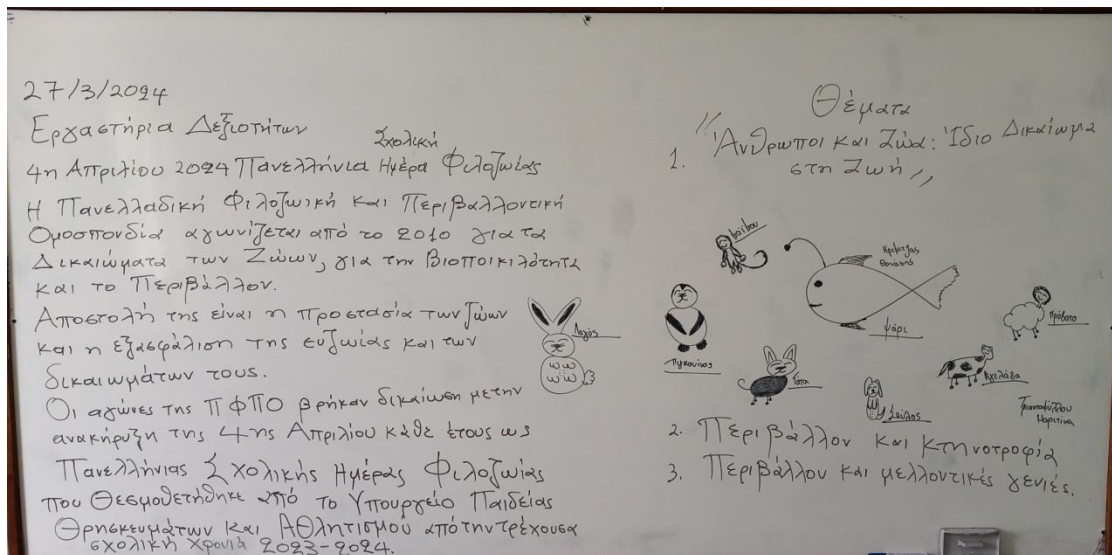 27/3/2024
Εργαστήρια Δεξιοτήτων
Σχολική
4η Απριλίου 2024 Πανελλήνια Ημέρα Φιλοζωίας
Η Πανελλαδική Φιλοζωική και Περιβαλλοντική
Ομοσπονδία αγωνίζεται από το 2010 για τα
Δικαιώματα των Ζώων, για την Βιοποικιλότητα
και το Περιβάλλον.
Αποστολή της είναι η προστασία των ζώων
και η εξασφάλιση της ευζωίας και των
δικαιωμάτων τους.
Οι αγώνες της ΠΦΠΟ βρήκαν δικαίωση με την
ανακήρυξη της 4ης Απριλίου κάθε έτους ως
Πανελλήνιας Σχολικής Ημέρας Φιλοζωίας
που Θεσμοθετήθηκε από το Υπουργείο Παιδείας
Θρησκευμάτων και Αθλητισμού από την τρέχουσα
σχολική χρονιά 2023-2024.
Λαγός
Θέματα
1. "Άνθρωποι και Ζώα: Ίδιο Δικαίωμα
στη Ζωή"
Θανάσης
ψάρι
Πρόβατο
Πιγκουίνος
Γάτα
Σκύλος
Αγελάδα
Τριανταφύλλου
Μαρτίνα
2. Περιβάλλον και κτηνοτροφία
3. Περιβάλλον και μελλοντικές γενιές.